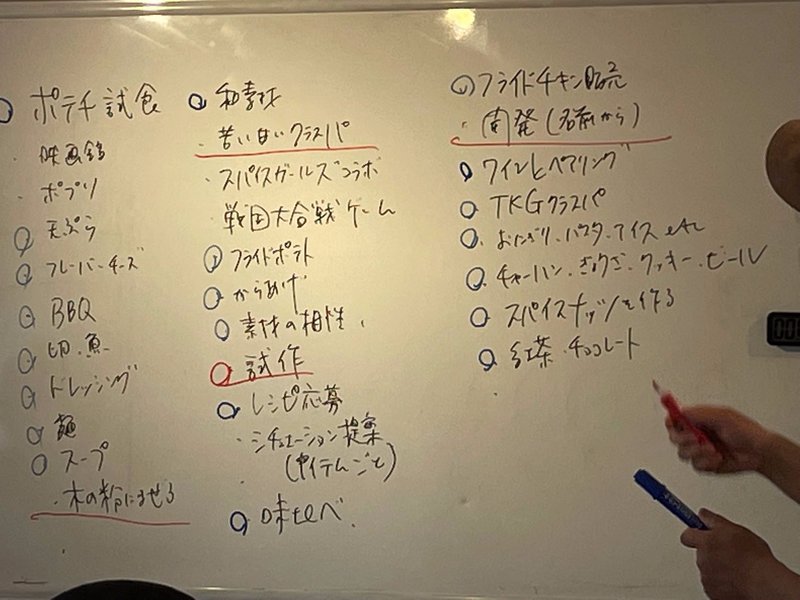 ポテチ試食
・映画館
・ポプリ
天ぷら
フレーバーチーズ
BBQ
肉、魚
ドレッシング
麺
スープ
・木の粉にまぜる
和素材
・苦い甘いクラスパ
・スパイスガールズコラボ
戦国大合戦ゲーム
フライドポテト
からあげ
素材の相性
試作
レシピ応募
・シチュエーション提案
(アイテムごと)
味比べ
フライドチキン販売
・開発(名前から)
ワインとペアリング
TKGクラスパ
おにぎり、パスタ、アイス etc
チャーハン、ぎょうざ、クッキー、ビール
スパイスナッツを作る
紅茶・チョコレート